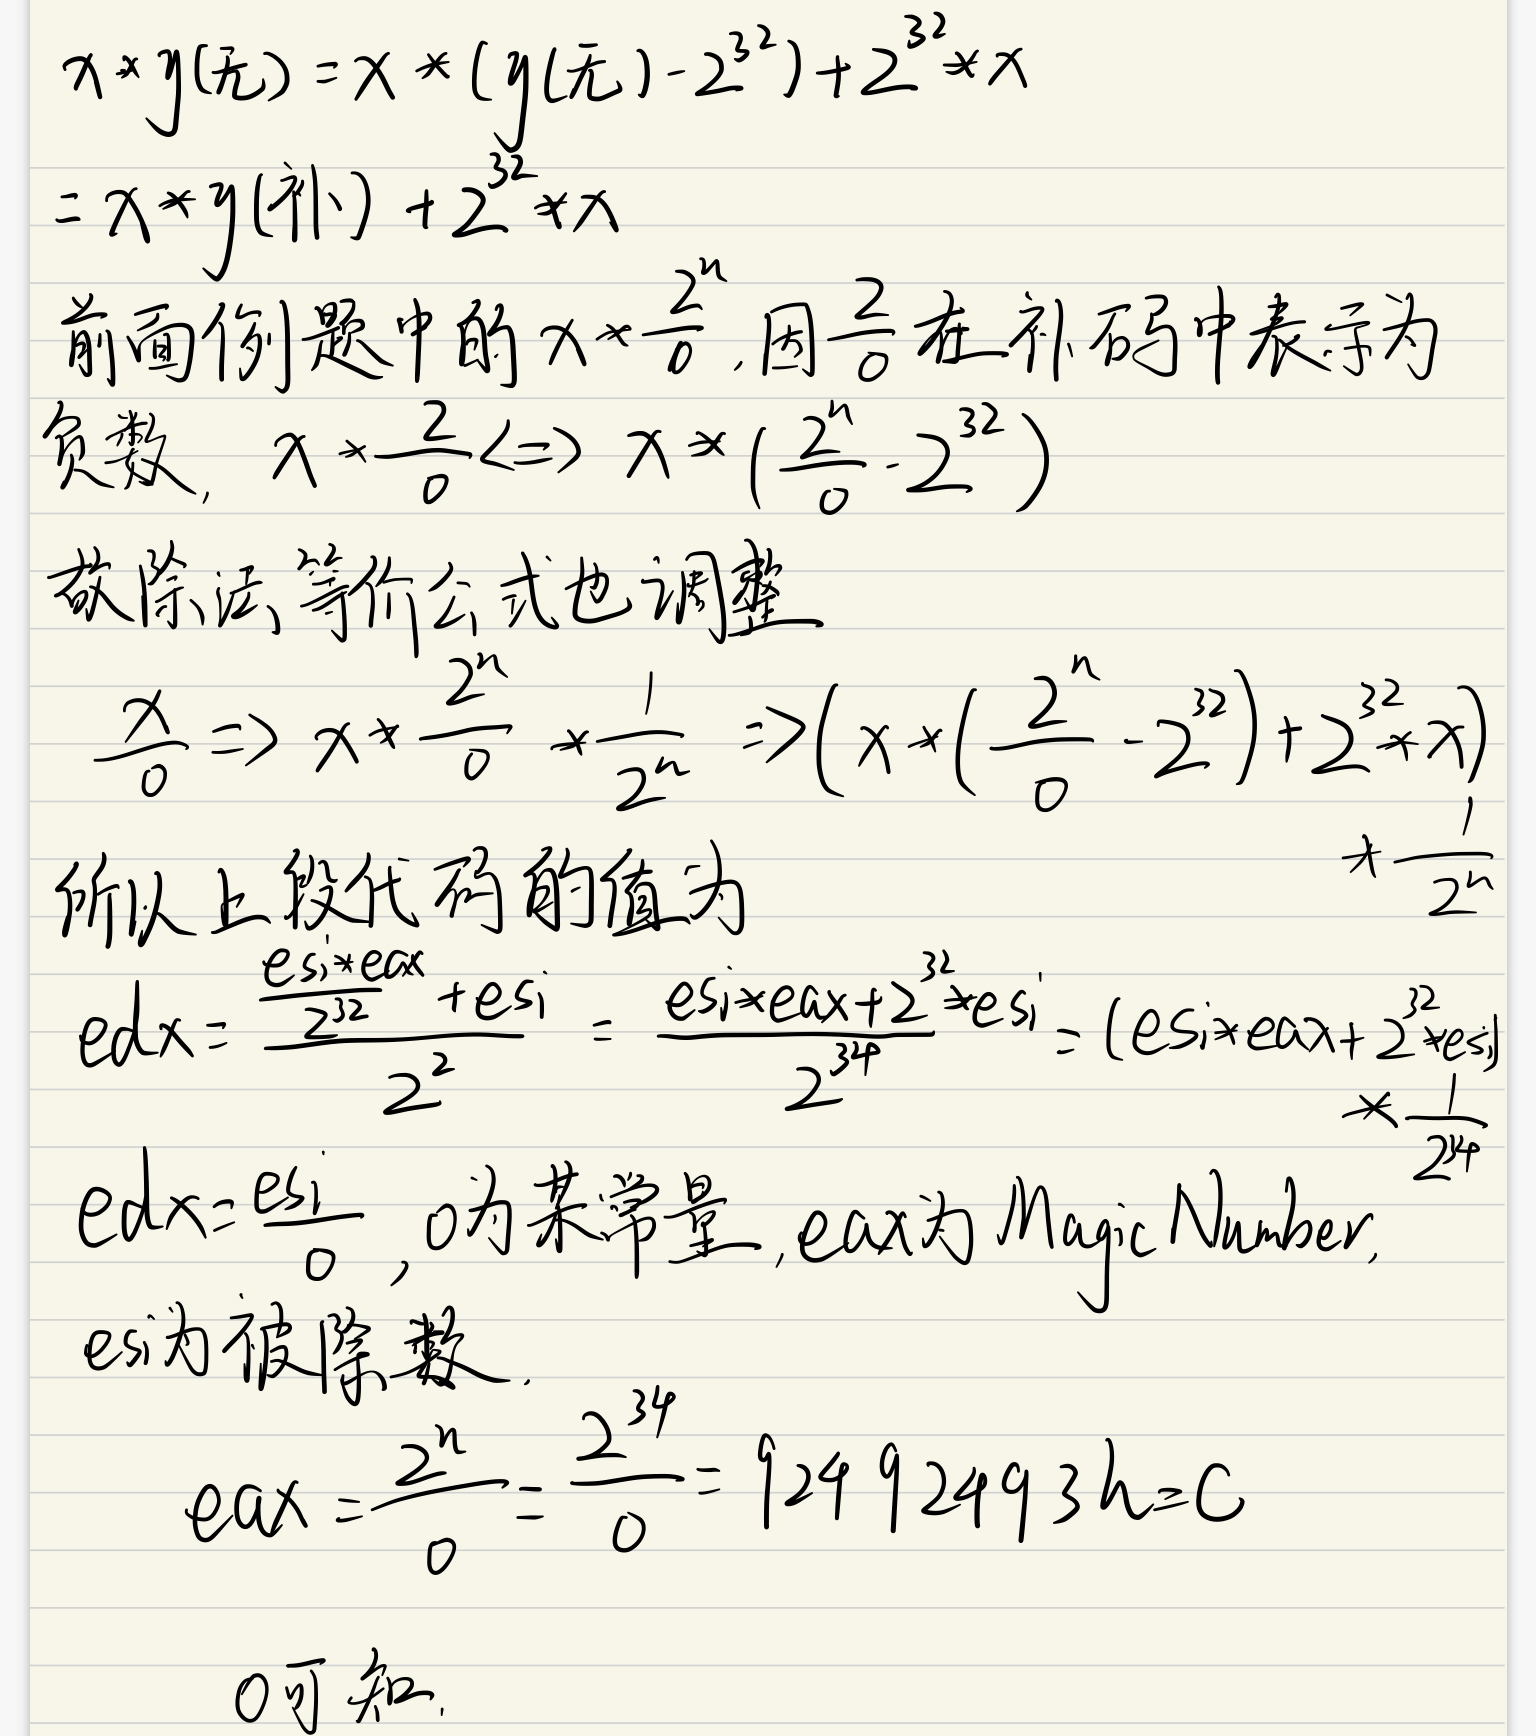 x*y(无)=x*(y(无)-2^32)+2^32*x
=x*y(补)+2^32*x
前面例题中的x*2^n/0,因2/0在补码中表示为
负数, x*2/0<=>x*(2^n/0-2^32)
故除法等价公式也调整
x/0=>x*2^n/0*1/2^n=>(x*(2^n/0-2^32)+2^32*x)
*1/2^n
所以上段代码的值为
edx=(esi*eax/2^32+esi)/2^2=(esi*eax+2^32*esi)/2^34=(esi*eax+2^32*esi)
*1/2^34
edx=esi/0,0为某常量,eax为Magic Number,
esi为被除数.
eax=2^n/0=2^34/0=92492493h=C
0可知.